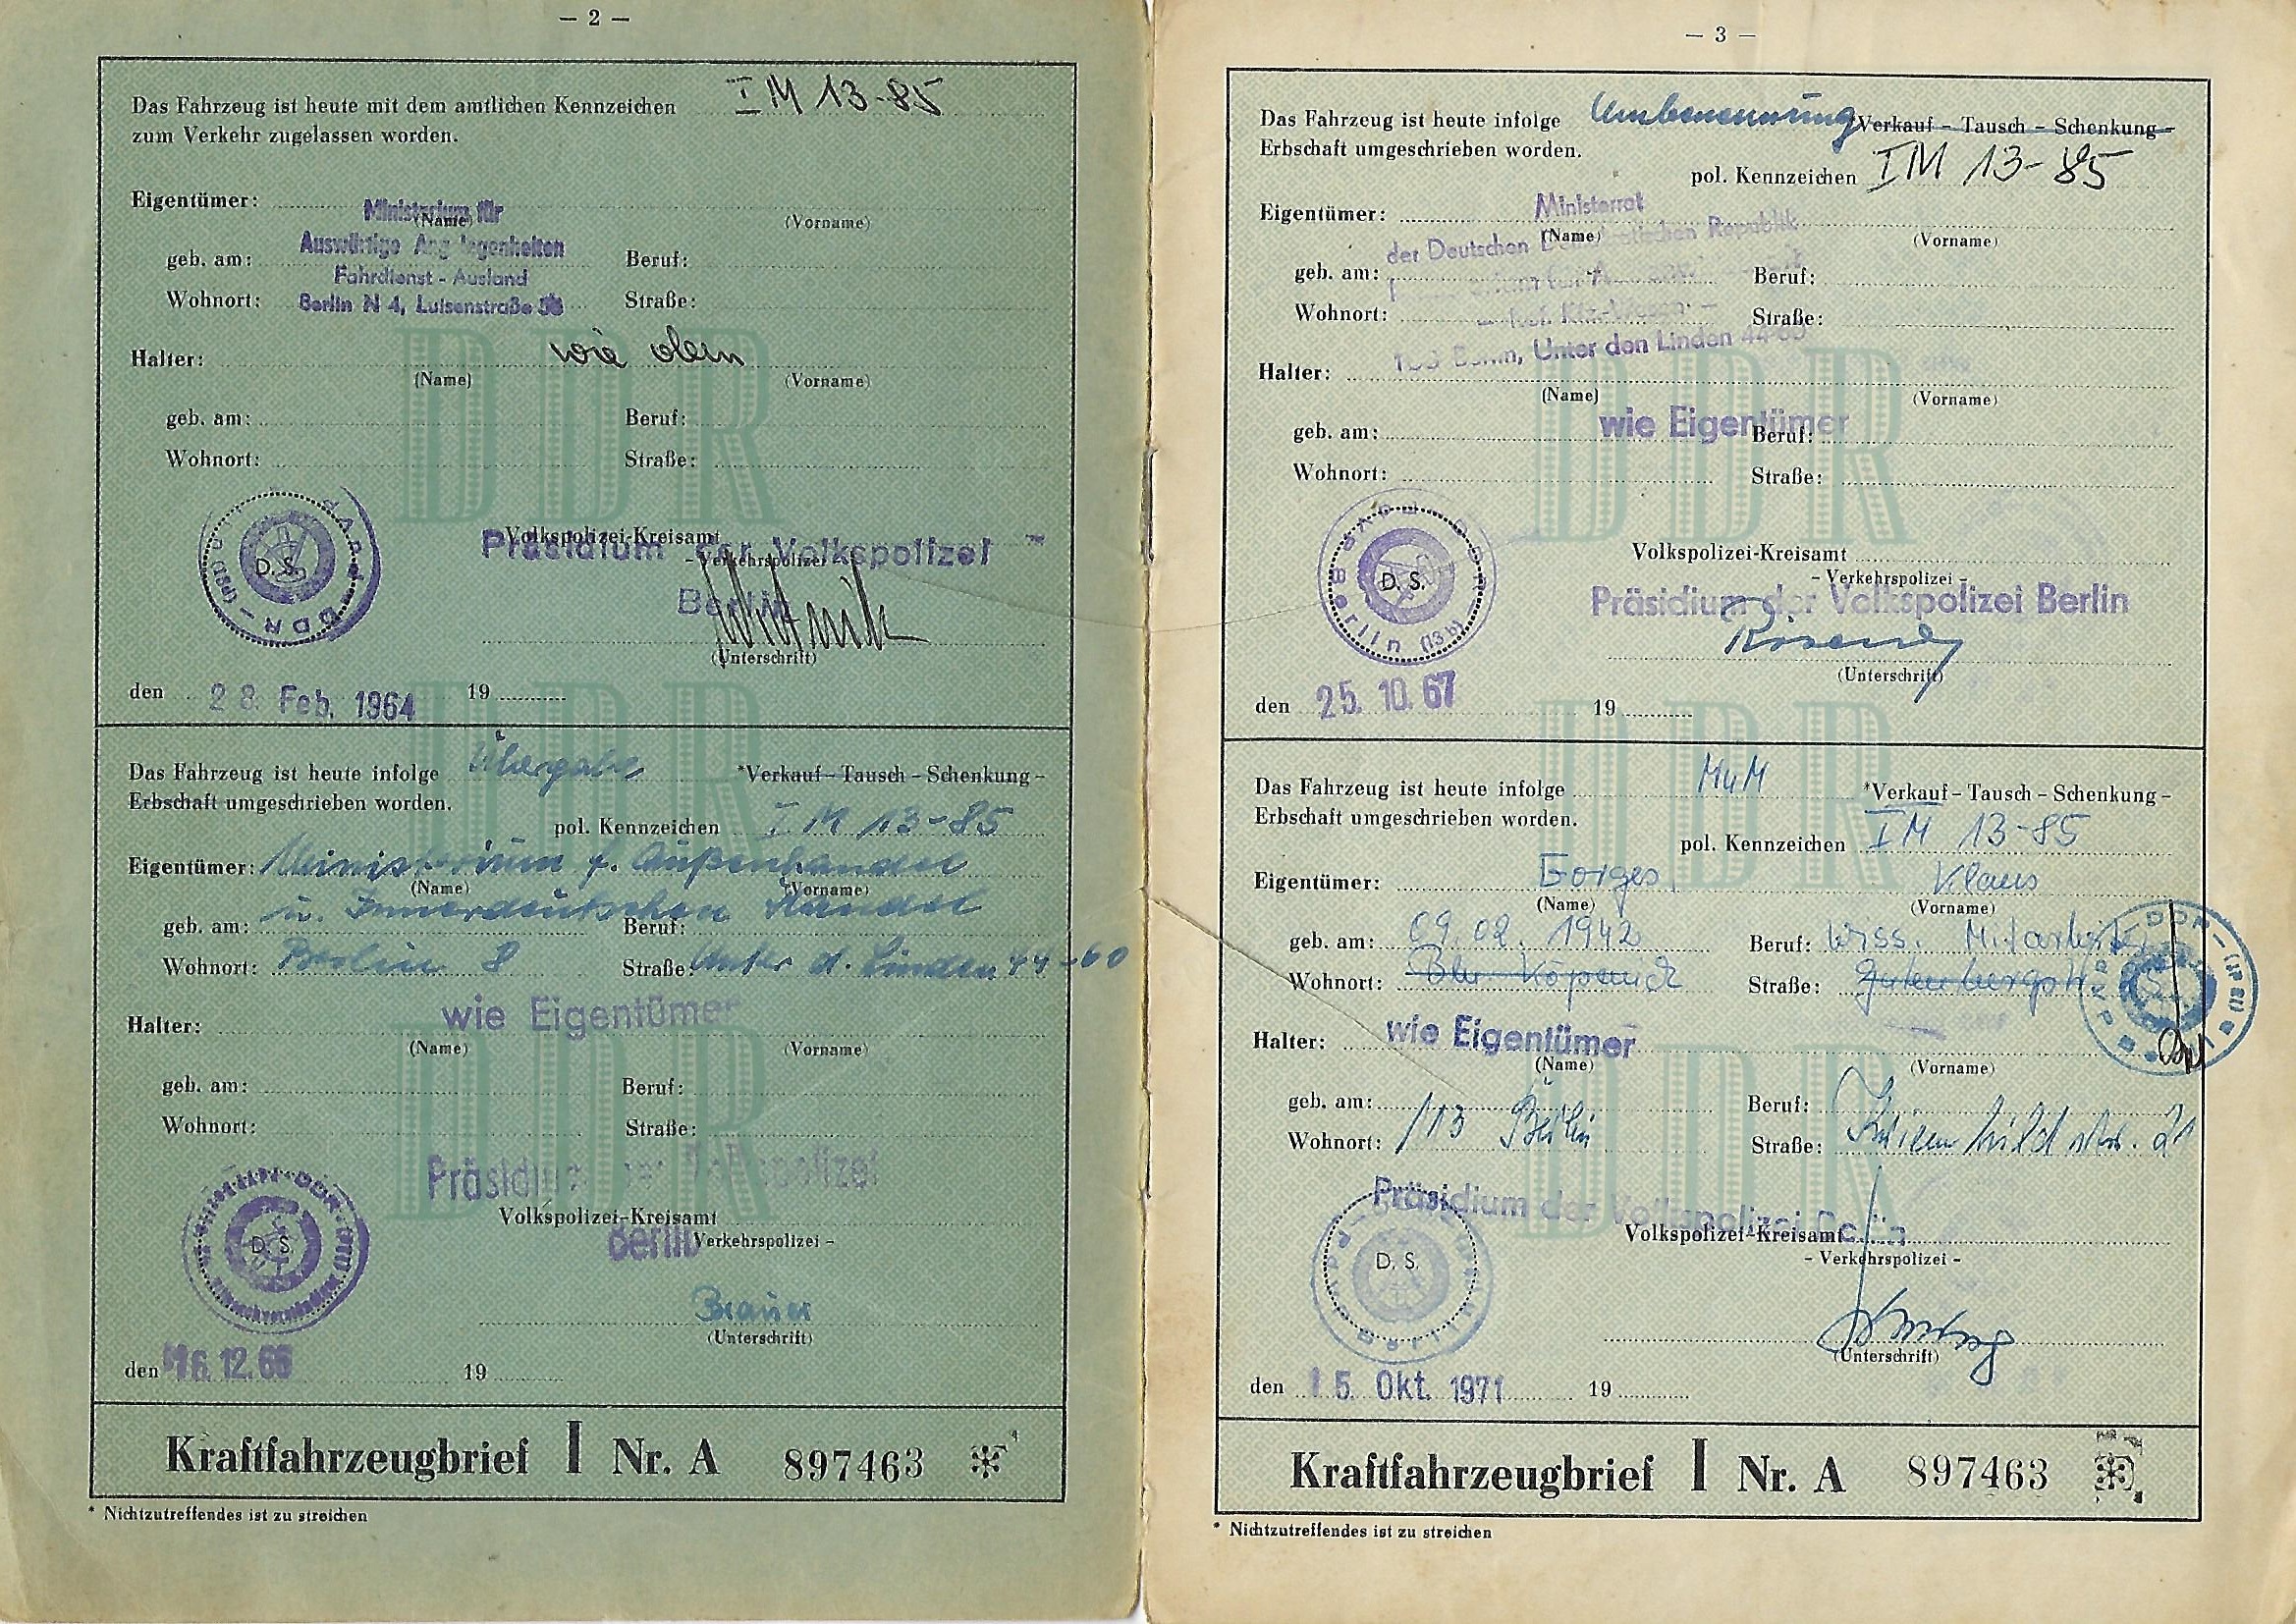 – 2 –
Das Fahrzeug ist heute mit dem amtlichen Kennzeichen IM 13-85
zum Verkehr zugelassen worden.
Eigentümer: Ministerium für
(Name) (Vorname)
Auswärtige Angelegenheiten
geb. am: Beruf:
Fahrdienst - Ausland
Wohnort: Berlin N 4, Luisenstraße Straße:
Halter: wie oben
(Name) (Vorname)
geb. am: Beruf:
Wohnort: Straße:
Volkspolizei-Kreisamt
Präsidium der Volkspolizei
- Verkehrspolizei
Berlin
D. S.
DDR
(Unterschrift)
den 28. Feb. 1964 19
Das Fahrzeug ist heute infolge Übergabe *Verkauf – Tausch – Schenkung –
Erbschaft umgeschrieben worden.
pol. Kennzeichen IM 13-85
Eigentümer: Ministerium f. Außenhandel
(Name) (Vorname)
u. Innerdeutschen Handel
geb. am: Beruf:
Wohnort: Berlin 8 Straße: Unter d. Linden 44-60
Halter: wie Eigentümer
(Name) (Vorname)
geb. am: Beruf:
Wohnort: Straße:
Präsidium der Volkspolizei
Volkspolizei-Kreisamt
Berlin Verkehrspolizei –
D. S.
Brauer
(Unterschrift)
den 16.12.66 19
Kraftfahrzeugbrief I Nr. A 897463
* Nichtzutreffendes ist zu streichen
– 3 –
Das Fahrzeug ist heute infolge Umbenennung Verkauf – Tausch – Schenkung –
Erbschaft umgeschrieben worden.
pol. Kennzeichen IM 13-85
Eigentümer: Ministerrat
(Name) (Vorname)
der Deutschen Demokratischen Republik
geb. am: Beruf:
Kfz.-Wesen –
Wohnort: Straße:
Berlin, Unter den Linden 44-60
Halter:
(Name) (Vorname)
wie Eigentümer
geb. am: Beruf:
Wohnort: Straße:
Volkspolizei-Kreisamt
– Verkehrspolizei –
Präsidium der Volkspolizei Berlin
D. S.
Berlin (13b)
(Unterschrift)
den 25. 10. 67 19
Das Fahrzeug ist heute infolge MuM *Verkauf – Tausch – Schenkung –
Erbschaft umgeschrieben worden.
pol. Kennzeichen IM 13-85
Eigentümer: Gorges, Klaus
(Name) (Vorname)
geb. am: 09. 02. 1942 Beruf: Wiss. Mitarbeiter
Wohnort: Bln Köpenick Straße: Gutenbergstr
Halter: wie Eigentümer
(Name) (Vorname)
geb. am: Beruf:
Wohnort: 113 Berlin Straße: Kriemhildstr. 21
Präsidium der Volkspolizei Berlin
Volkspolizei-Kreisamt
– Verkehrspolizei –
D. S.
(Unterschrift)
den 15. Okt. 1971 19
Kraftfahrzeugbrief I Nr. A 897463
* Nichtzutreffendes ist zu streichen